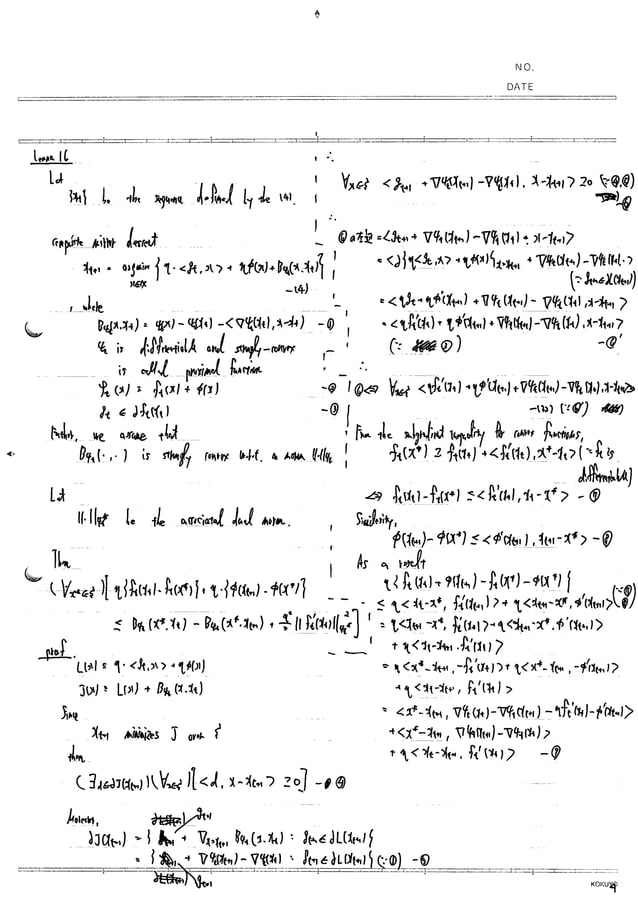 NO.
DATE
Lemma 16
Let
{x_t} be the sequence defined by the (4).
composite mirror descent
x_{t+1} = argmin_{x∈X} { η·<g_t, x> + ηφ(x) + B_{ψ_t}(x, x_t) }
—(4)
, where
B_{ψ_t}(x, x_t) = ψ_t(x) − ψ_t(x_t) − <∇ψ_t(x_t), x−x_t> —①
ψ_t is differentiable and strongly-convex
is called proximal function
f_t(x) = f_t(x) + φ(x) —②
g_t ∈ ∂f_t(x_t) —③
Further, we assume that
B_{ψ_t}(·,·) is strongly convex w.r.t. a norm ||·||_{ψ_t}
Let
||·||_{ψ_t^*} be the associated dual norm.
Then
(∀x^*∈ξ)[ η{f_t(x_t) − f_t(x^*)} + η·{φ(x_{t+1}) − φ(x^*)}
≤ B_{ψ_t}(x^*, x_t) − B_{ψ_t}(x^*, x_{t+1}) + η²/2 ||f_t'(x_t)||²_{ψ_t^*} ]
proof.
L(x) = η·<g_t, x> + ηφ(x)
J(x) = L(x) + B_{ψ_t}(x, x_t)
Since
x_{t+1} minimizes J over ξ
then
(∃d∈∂J(x_{t+1}))(∀x∈ξ)[<d, x−x_{t+1}> ≥ 0] —④
Moreover,
g_{t+1}
∂J(x_{t+1}) = { + ∇_{x=x_{t+1}} B_{ψ_t}(x, x_t) : g_{t+1} ∈ ∂L(x_{t+1}) }
= { + ∇ψ_t(x_{t+1}) − ∇ψ_t(x_t) : g_{t+1} ∈ ∂L(x_{t+1}) } (∵①) —⑤
g_{t+1}
∴
∀x∈ξ <g_{t+1} + ∇ψ_t(x_{t+1}) − ∇ψ_t(x_t), x−x_{t+1}> ≥ 0 (∵④,⑤)
—⑥
∴
⑥の左辺 = <g_{t+1} + ∇ψ_t(x_{t+1}) − ∇ψ_t(x_t), x−x_{t+1}>
(∵ g_{t+1}∈∂L(x_{t+1}))
= <ηg_t + ηφ'(x_{t+1}) + ∇ψ_t(x_{t+1}) − ∇ψ_t(x_t), x−x_{t+1}>
= <ηf_t'(x_t) + ηφ'(x_{t+1}) + ∇ψ_t(x_{t+1}) − ∇ψ_t(x_t), x−x_{t+1}>
—⑥'
∴
⑥⇔ ∀x∈ξ <ηf_t'(x_t) + ηφ'(x_{t+1}) + ∇ψ_t(x_{t+1}) − ∇ψ_t(x_t), x−x_{t+1}> ≥0
(∵⑥')
From the subgradient inequality for convex functions,
f_t(x^*) ≥ f_t(x_t) + <f_t'(x_t), x^*−x_t> (∵ f_t is
differentiable)
⇔ f_t(x_t) − f_t(x^*) ≤ <f_t'(x_t), x_t−x^*> —⑦
Similarity,
φ(x_{t+1}) − φ(x^*) ≤ <φ'(x_{t+1}), x_{t+1}−x^*> —⑧
As a result
η{f_t(x_t) + φ(x_{t+1}) − f_t(x^*) − φ(x^*)}
≤ η<x_t−x^*, f_t'(x_t)> + η<x_{t+1}−x^*, φ'(x_{t+1})> (∵⑦⑧)
= η<x_{t+1}−x^*, f_t'(x_t)> − η<x_{t+1}−x^*, φ'(x_{t+1})>
+ η<x_t−x_{t+1}, f_t'(x_t)>
= η<x^*−x_{t+1}, −f_t'(x_t)> + η<x^*−x_{t+1}, −φ'(x_{t+1})>
+ η<x_t−x_{t+1}, f_t'(x_t)>
= <x^*−x_{t+1}, ∇ψ_t(x_t) − ∇ψ_t(x_{t+1}) − ηf_t'(x_t) − φ'(x_{t+1})>
+ <x^*−x_{t+1}, ∇ψ_t(x_{t+1}) − ∇ψ_t(x_t)>
+ η<x_t−x_{t+1}, f_t'(x_t)> —⑨
KOKUYO